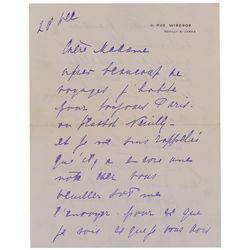 20 Dec
11, RUE WINDSOR
NEUILLY S/ SEINE
Chère Madame
après beaucoup de
voyages j'habite
pour toujours Paris
ou plutôt Neuilly
et je me suis rappelée
qu'il y a encore une
note chez vous
veuillez donc me
l'envoyer pour ce que
je sois que je vous dois